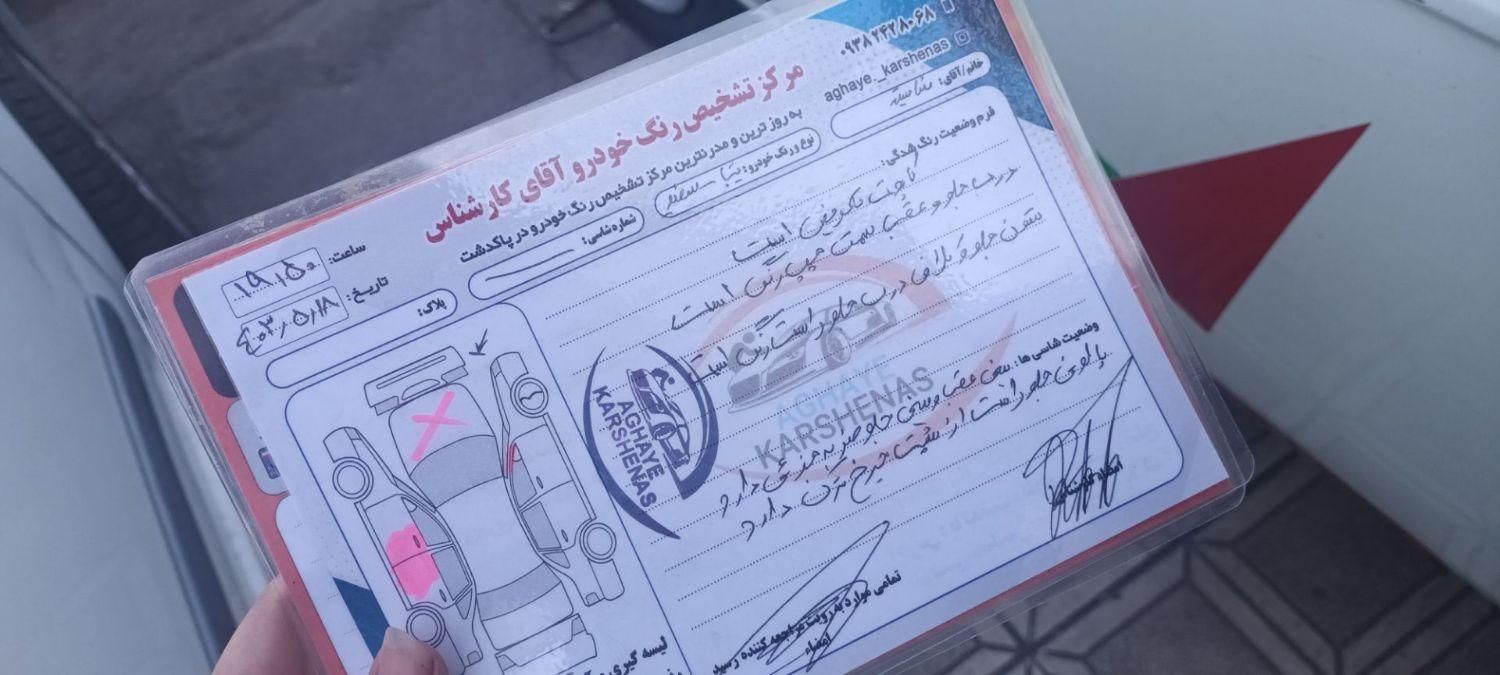 ۰۹۳۸۲۴۲۸۰۶۸
aghaye._karshenas
مرکز تشخیص رنگ خودرو آقای کارشناس
به روز ترین و مدرنترین مرکز تشخیص رنگ خودرو در پاکدشت
خانم/آقای:
نوع و رنگ خودرو: تیبا - سفید
شماره شاسی:
ساعت: ۱۹,۱۵
تاریخ: ۴۰۳/۰۵/۱۸
پلاک:
فرم وضعیت رنگ شدگی:
کاپوت تعویض است
درب جلو و عقب سمت چپ رنگ است
ستون جلو کلافی درب جلو راست رنگ است
وضعیت شاسی ها: سینی عقب و سینی جلو ضربه جزئی دارد
پالونی جلو راست از پشت چرخ ترک دارد
AGHAYE
KARSHENAS
AGHAYE
KARSHENAS
امضاء کارشناس
تمامی موارد به رویت مراجعه کننده رسید
امضاء
لیسه گیری و